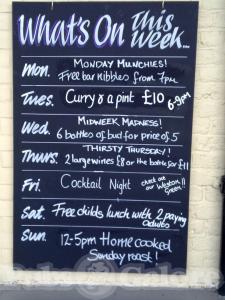 What's On This
Week...
Mon. MONDAY MUNCHIES!
Free bar nibbles from 7pm
Tues. Curry & a pint £10 6-9pm
Wed. MIDWEEK MADNESS!
6 bottles of bud for price of 5
Thurs. THIRSTY THURSDAY!
2 large wines £8 or the bottle for £11
Fri. Cocktail Night check out
our
Screen!
Sat. Free childs lunch with 2 paying
adults
Sun. 12-5pm Home cooked
Sunday roast!